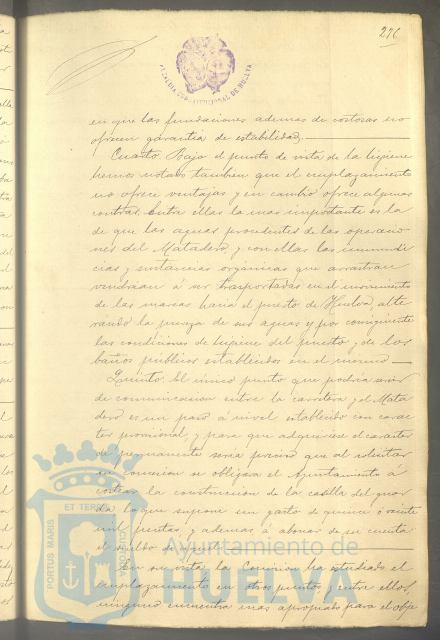 276
ALCALDIA CONSTITUCIONAL DE HUELVA
en que las fundaciones ademas de costosas no
ofrecen garantia de estabilidad.
Cuarto. Bajo el punto de vista de la higiene
hemos notado tambien que el emplazamiento
no ofrece ventajas y en cambio ofrece algunas
contras. Entre ellas la mas importante es la
de que las aguas procedentes de las operacio-
nes del Matadero, y con ellas las inmundi-
cias y sustancias orgánicas que arrastran
vendrian á ser trasportadas en el movimiento
de las mareas hacia el puerto de Huelva, alte-
rando la pureza de sus aguas y por consiguiente
las condiciones de higiene del puerto y de los
baños publicos establecidos en el mismo
Quinto. El unico punto que podria servir
de comunicacion entre la carretera y el Mata
dero es un paso á nivel establecido con carac
ter provisional y para que adquiriese el caracter
de permanente seria preciso que al solicitar
su concesion se obligara el Ayuntamiento á
costear la construccion de la casilla del guar
da lo que supone un gasto de quince á veinte
mil pesetas, y ademas á abonar de su cuenta
el sueldo de
En su vista la Comision ha estudiado el
emplazamiento en otros puntos y entre ellos,
ninguno encuentra mas apropiado para el obje
PORTUS MARIS ET TERRAE CUSTODIA
Ayuntamiento de
HUELVA